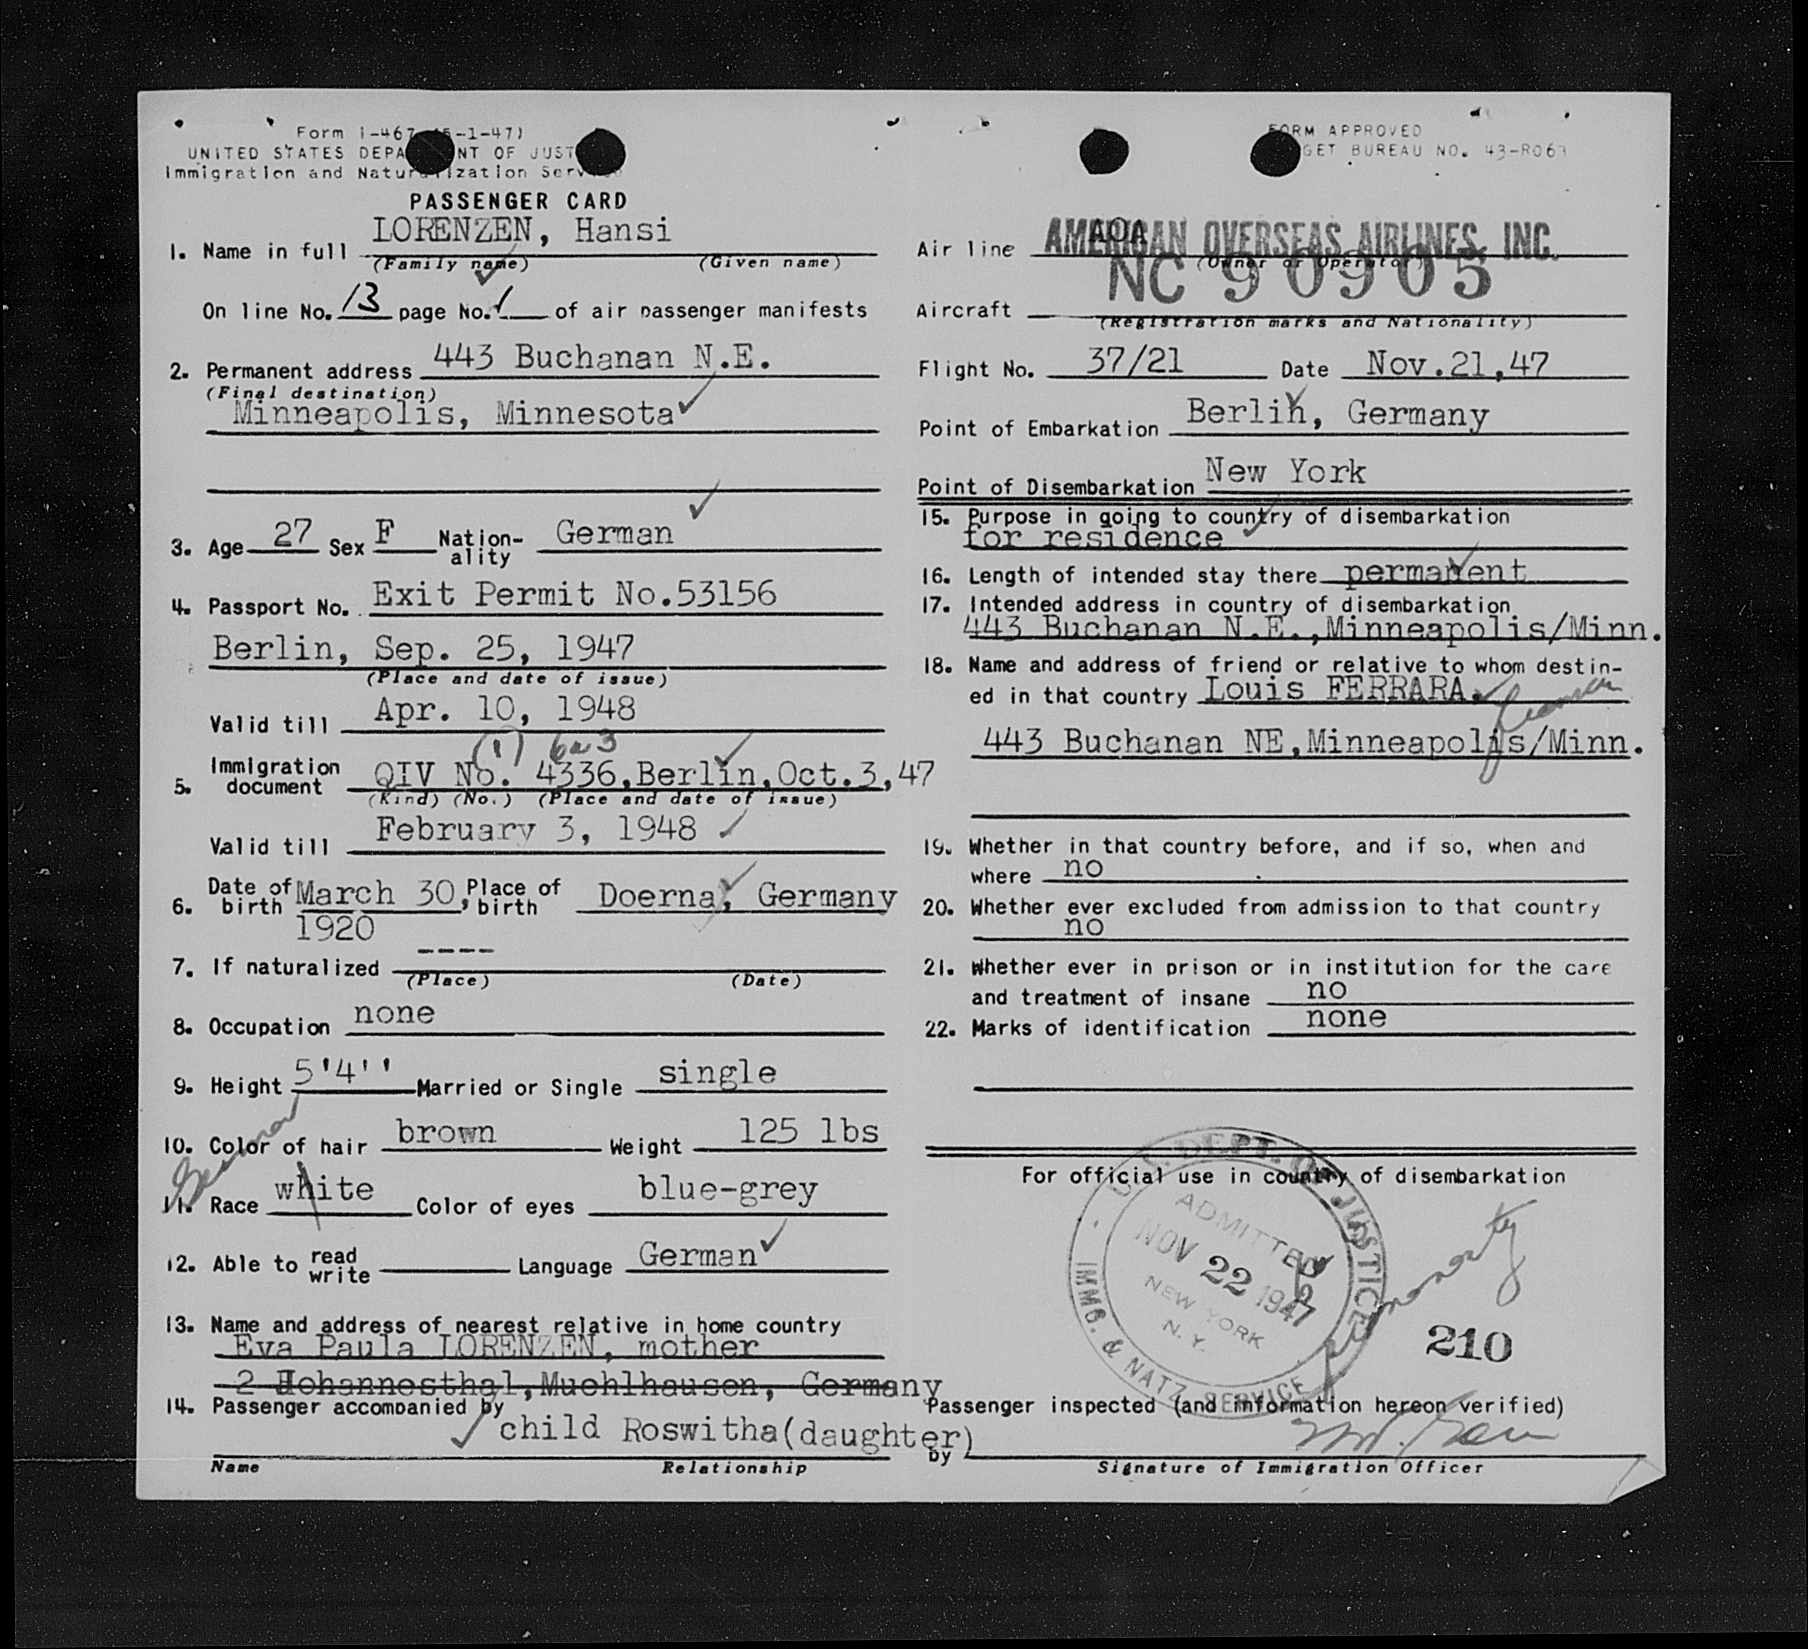 Form I-467 (5-1-47)
UNITED STATES DEPA NT OF JUST
Immigration and Natur ization Serv
PASSENGER CARD
1. Name in full LORENZEN, Hansi
(Family name) (Given name)
On line No. 13 page No. 1 of air passenger manifests
2. Permanent address 443 Buchanan N.E.
(Final destination)
Minneapolis, Minnesota
3. Age 27 Sex F Nation-ality German
4. Passport No. Exit Permit No.53156
Berlin, Sep. 25, 1947
(Place and date of issue)
Valid till Apr. 10, 1948
(1) 6a3
5. Immigration document QIV No. 4336,Berlin,Oct.3,47
(Kind) (No.) (Place and date of issue)
Valid till February 3, 1948
6. Date of birth March 30, 1920 Place of birth Doerna, Germany
7. If naturalized ----
(Place) (Date)
8. Occupation none
9. Height 5'4'' Married or Single single
10. Color of hair brown Weight 125 lbs
German
11. Race white Color of eyes blue-grey
12. Able to read write Language German
13. Name and address of nearest relative in home country
Eva Paula LORENZEN, mother
2 Johannesthal,Muehlhausen, Germany
14. Passenger accompanied by
child Roswitha(daughter)
Name Relationship
FORM APPROVED
GET BUREAU NO. 43-R063
Air line AOA AMERICAN OVERSEAS AIRLINES, INC.
(Owner or Operator)
Aircraft NC 90905
(Registration marks and Nationality)
Flight No. 37/21 Date Nov.21,47
Point of Embarkation Berlin, Germany
Point of Disembarkation New York
15. Purpose in going to country of disembarkation
for residence
16. Length of intended stay there permanent
17. Intended address in country of disembarkation
443 Buchanan N.E.,Minneapolis/Minn.
18. Name and address of friend or relative to whom destin-
ed in that country Louis FERRARA.
443 Buchanan NE,Minneapolis/Minn.
19. Whether in that country before, and if so, when and
where no
20. Whether ever excluded from admission to that country
no
21. Whether ever in prison or in institution for the care
and treatment of insane no
22. Marks of identification none
For official use in country of disembarkation
U. S. DEPT. OF JUSTICE
ADMITTED
NOV 22 1947
NEW YORK
N. Y.
IMMG. & NATZ. SERVICE
210
Passenger inspected (and information hereon verified)
by
Signature of Immigration Officer